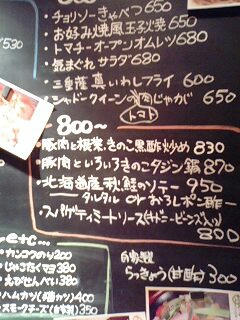 ・チョリソーきゃべつ 650
・お好み焼風玉子焼 650
・トマチーオープンオムレツ 680
・気まぐれサラダ 680
・三重産真いわしフライ 600
・シャドークイーンの肉じゃが 650
トマト
530
~800~
・豚肉と根菜、きのこ黒酢炒め 830
・豚肉といろいろきのこタジン鍋 870
・北海道産秋鮭のソテー 950
タルタル or おろしポン酢
・スパゲティミートソース(キドニービーンズ入り)
800
etc...
カンコワのり 200
じゃこたくマヨ 380
えびせんべい 380
ハムカツ 400
スモークチーズ(自家製) 350
自家製
らっきょう(甘酢) 300